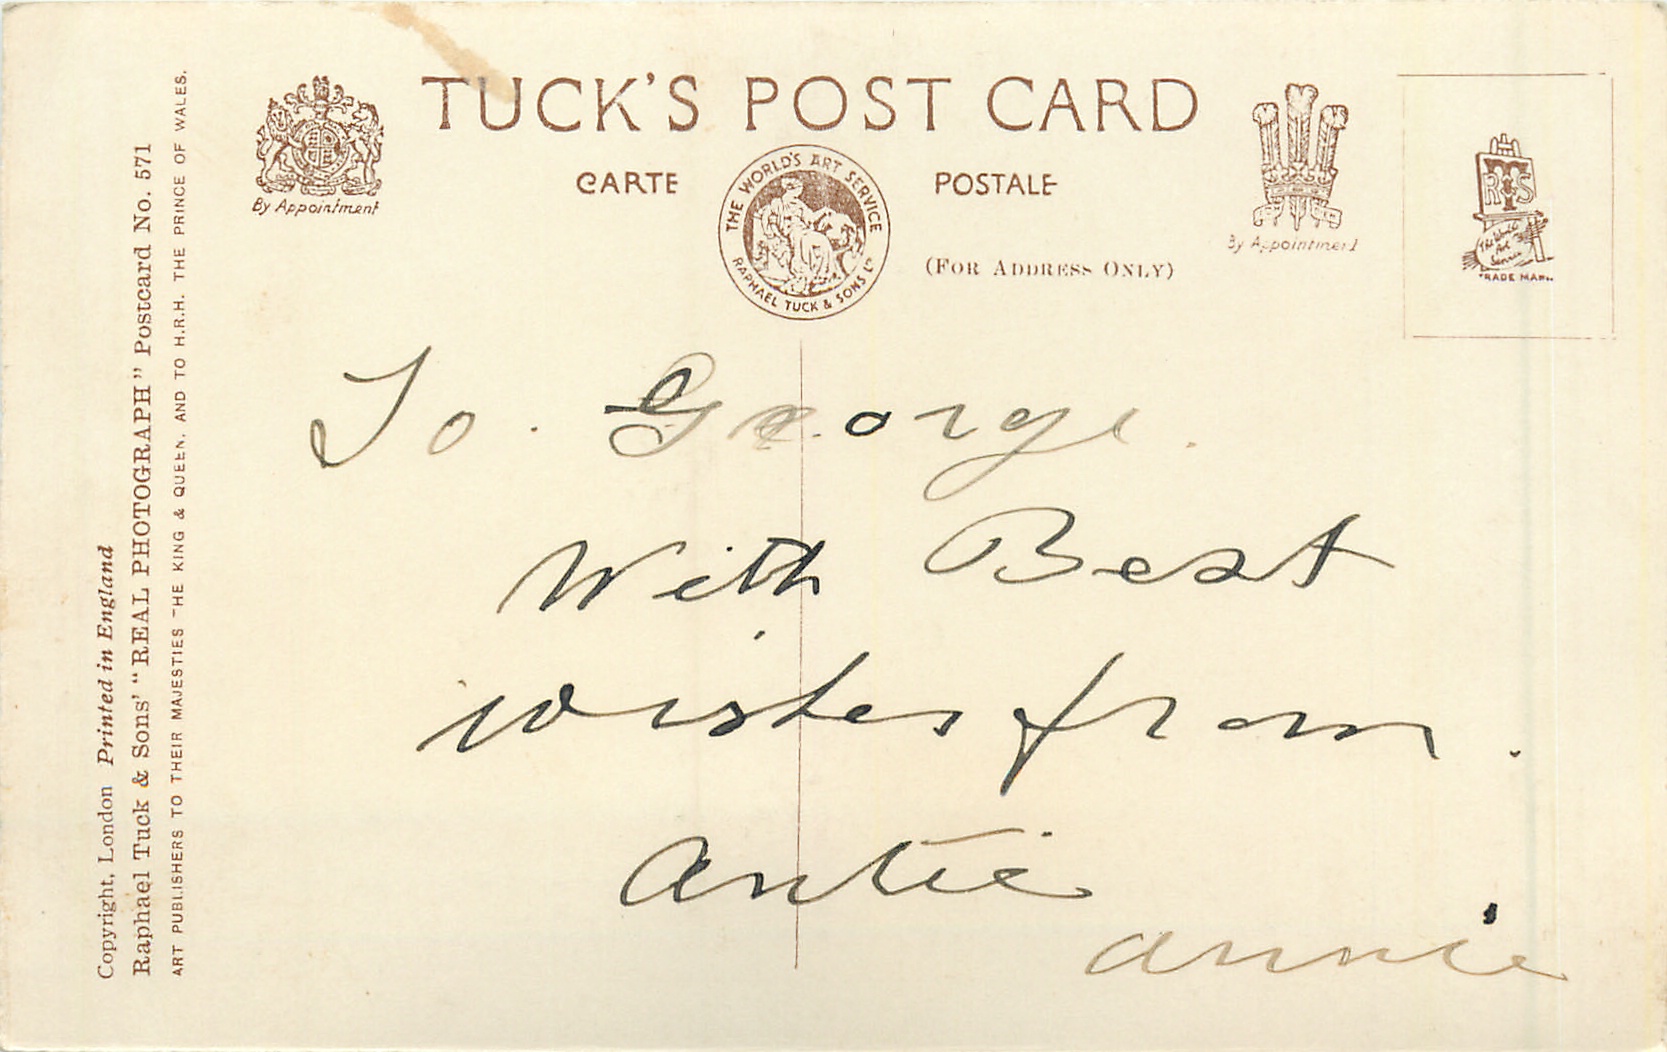 TUCK'S POST CARD
CARTE POSTALE
(FOR ADDRESS ONLY)
By Appointment
THE WORLD'S ART SERVICE
RAPHAEL TUCK & SONS LD
By Appointment
RTS
The World's Art Service
TRADE MARK
Copyright, London Printed in England
Raphael Tuck & Sons' "REAL PHOTOGRAPH" Postcard No. 571
ART PUBLISHERS TO THEIR MAJESTIES THE KING & QUEEN, AND TO H.R.H. THE PRINCE OF WALES.
To. George.
With Best
wishes from.
Antie
annie